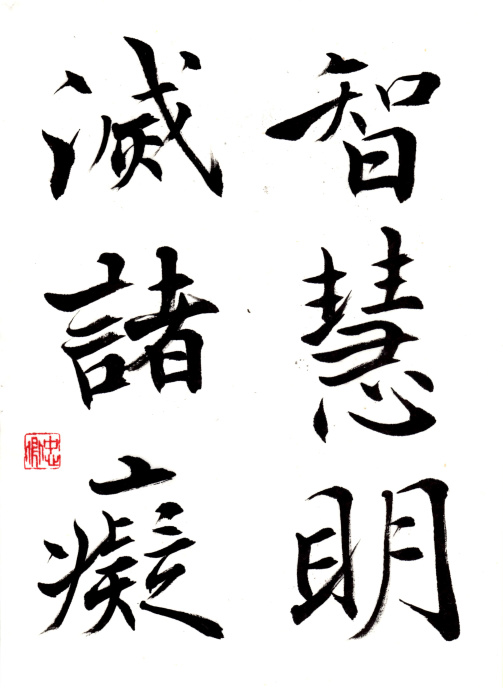 智慧明
滅諸癡